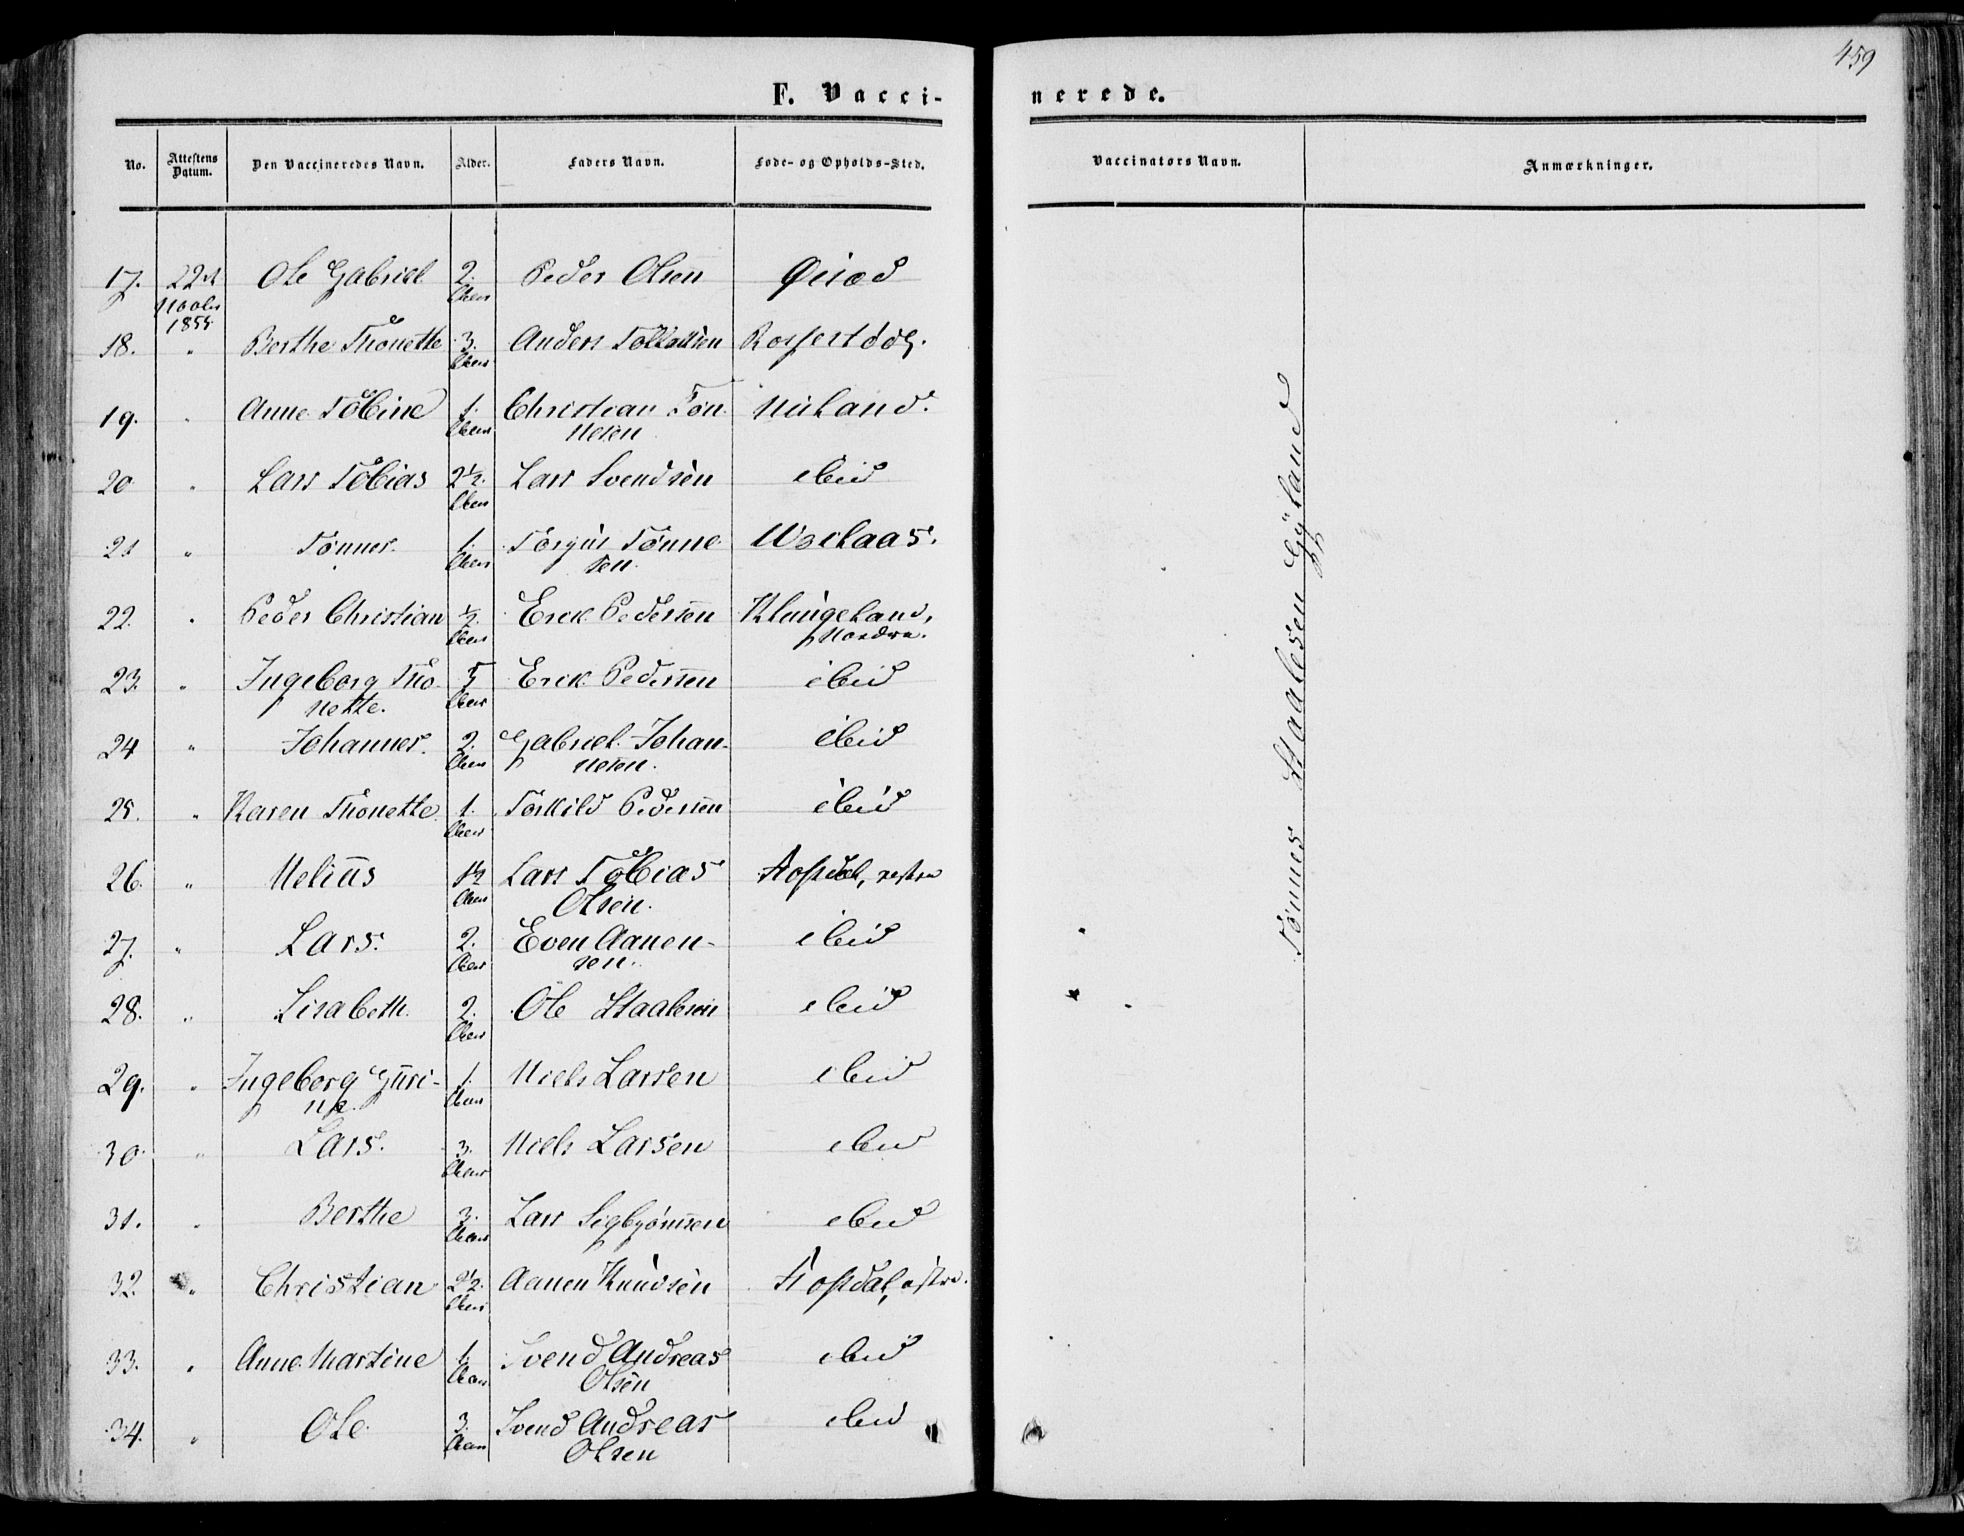 459
F. Vacci-
nerede.
No. Attestens Datum. Den Vaccineredes Navn. Alder. Faders Navn. Føde- og Opholds-Sted. Vaccinators Navn. Anmærkninger.
17. 22d Novbr 1855 Ole Gabriel 2. Aar Peder Olsen
18. " Berthe Thonette 3. Aar Anders
19. " Anne Tobine 1. Aar Christian Tønnesen Nuland.
20 " Lars Tobias 2½. Aar Lars Svendsen ibid
21 " Tønnes. 1. Aar Tørgus Tønnesen
22. " Peder Christian ½. Aar Erik Pedersen Klungeland, Nordre.
23. " Ingeborg Thonette. 5 Aar Erik Pedersen ibid
24 " Johannes. 2. Aar Gabriel Johannesen. ibid
25. " Karen Thonette. 1. Aar Torkild Pedersen ibid
26. " Melius 1½ Aar Lars Tobias Olsen. vestre
27. " Lars. 2. Aar Even Aanensen. ibid
28. " Lisabeth. 2. Aar Ole Staalesen ibid
29. " Ingeborg Gurine. 1. Aar Niels Larsen ibid
30. " Lars. 3. Aar Niels Larsen ibid
31. " Berthe 3. Aar Lars Sigbjørnsen ibid
32. " Christian 2½. Aar Aanen Knudsen østre.
33. " Anne Martine 1. Aar Svend Andreas Olsen ibid
34. " Ole. 3. Aar Svend Andreas Olsen ibid
Tønnes Staalesen Gyland